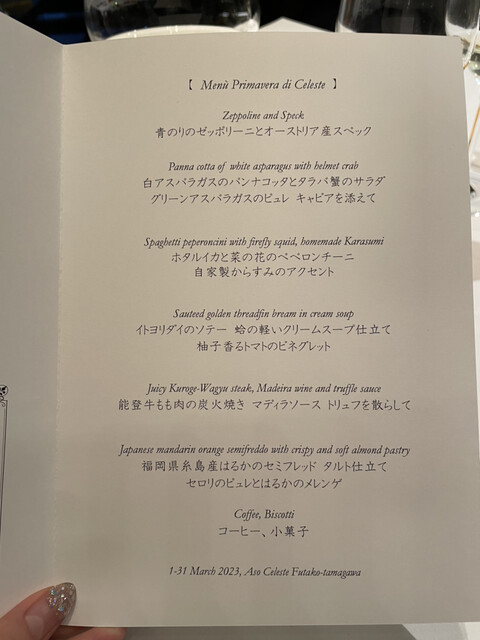 【 Menù Primavera di Celeste 】
Zeppoline and Speck
青のりのゼッポリーニとオーストリア産スペック
Panna cotta of white asparagus with helmet crab
白アスパラガスのパンナコッタとタラバ蟹のサラダ
グリーンアスパラガスのピュレ キャビアを添えて
Spaghetti peperoncini with firefly squid, homemade Karasumi
ホタルイカと菜の花のペペロンチーニ
自家製からすみのアクセント
Sauteed golden threadfin bream in cream soup
イトヨリダイのソテー 蛤の軽いクリームスープ仕立て
柚子香るトマトのビネグレット
Juicy Kuroge-Wagyu steak, Madeira wine and truffle sauce
能登牛もも肉の炭火焼き マディラソース トリュフを散らして
Japanese mandarin orange semifreddo with crispy and soft almond pastry
福岡県糸島産はるかのセミフレッド タルト仕立て
セロリのピュレとはるかのメレンゲ
Coffee, Biscotti
コーヒー、小菓子
1-31 March 2023, Aso Celeste Futako-tamagawa